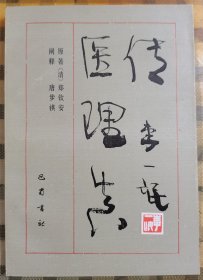 医理真
传
李一氓
原著(清)郑钦安
阐释 唐步祺
巴蜀书社